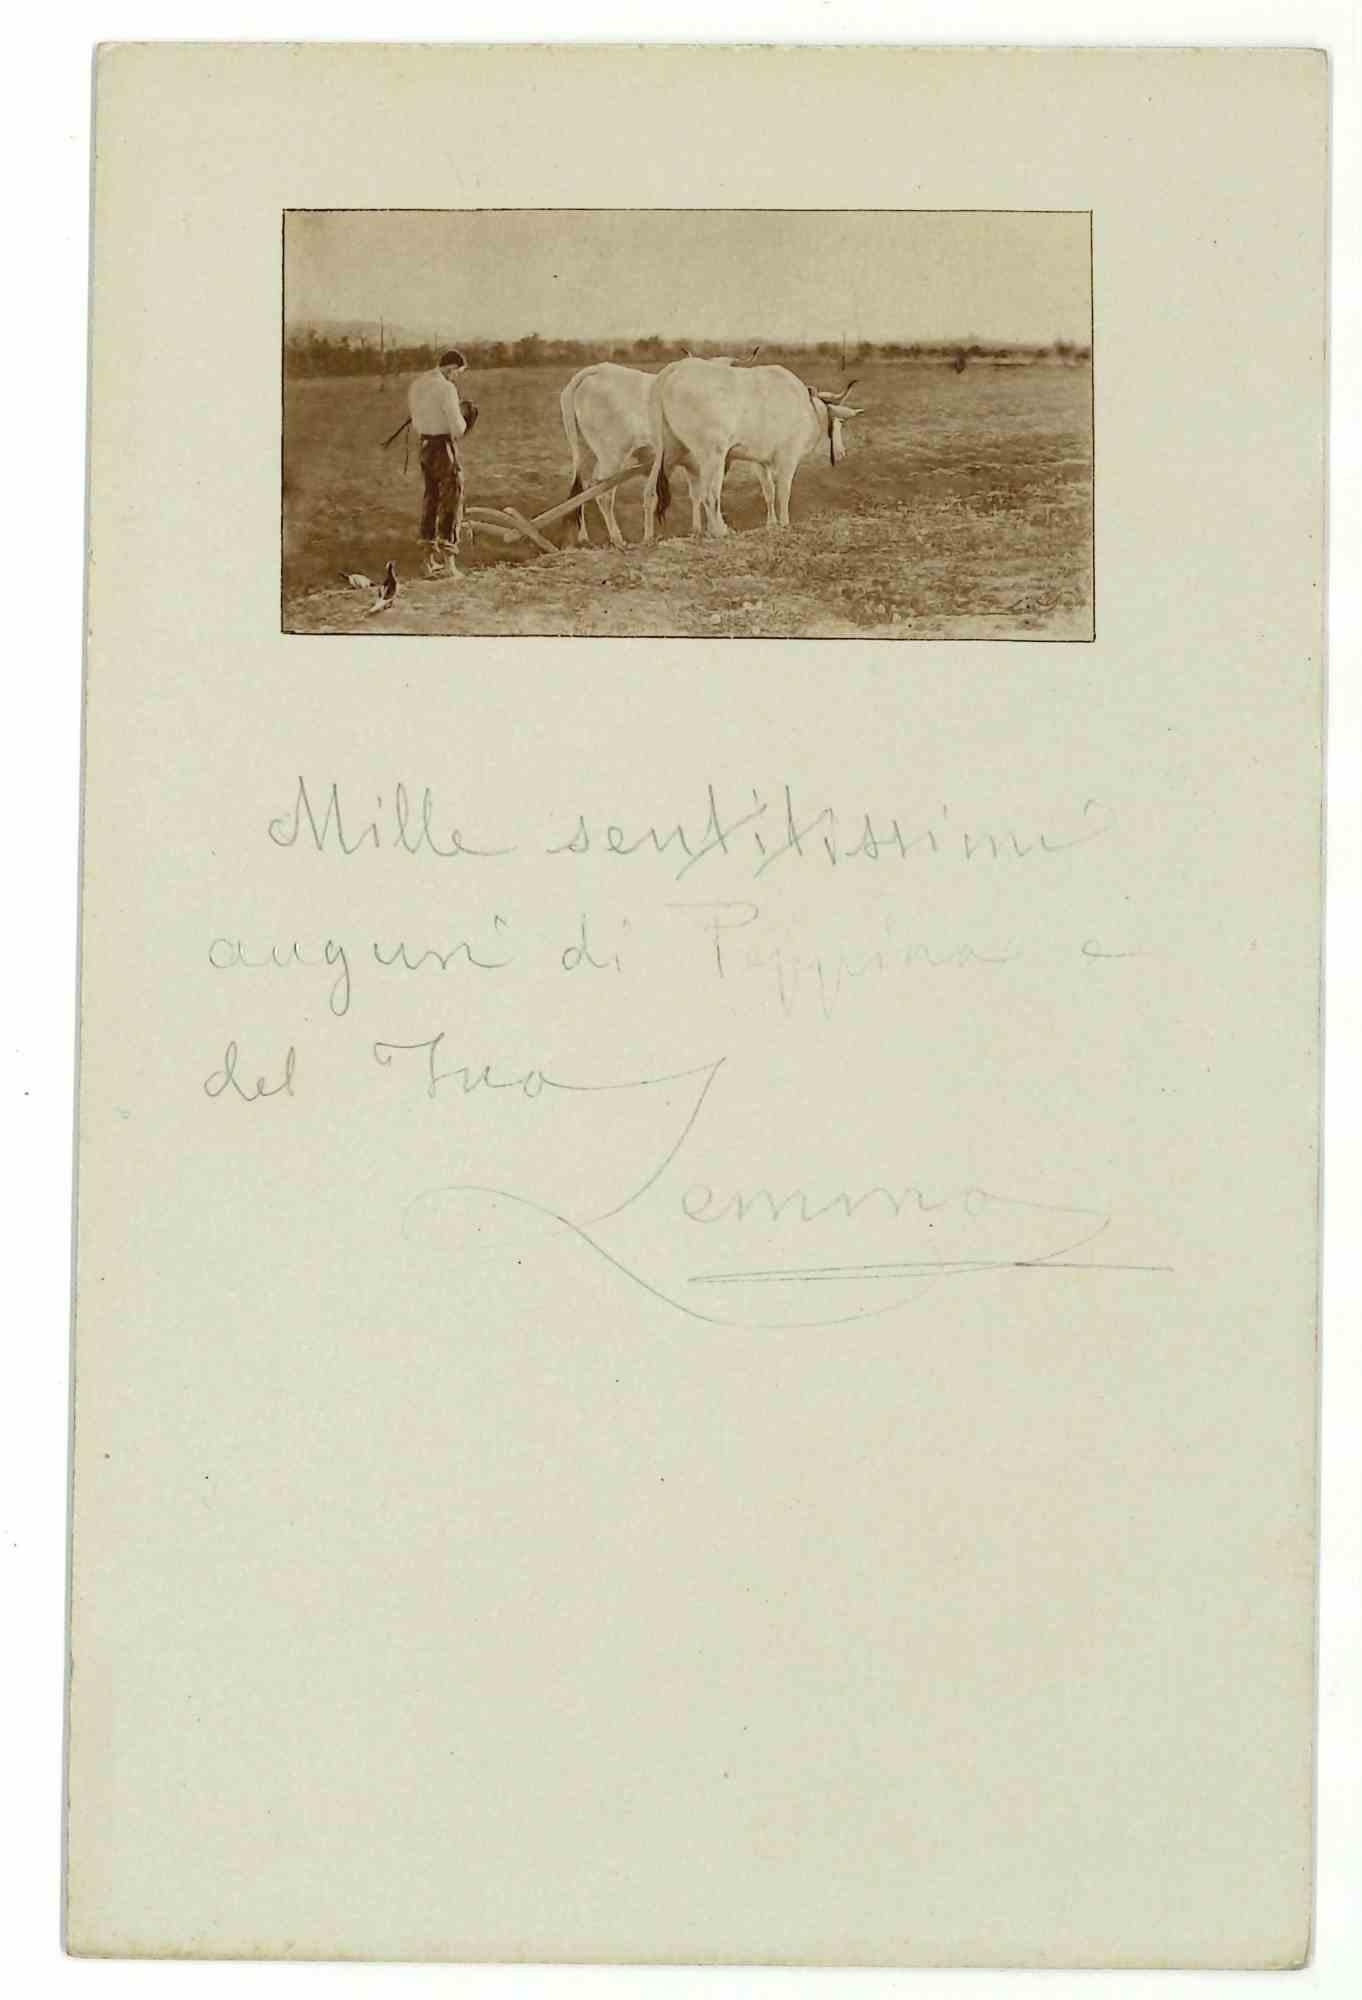 Mille sentitissimi
auguri di Peppina e
del Tuo
Lemmo